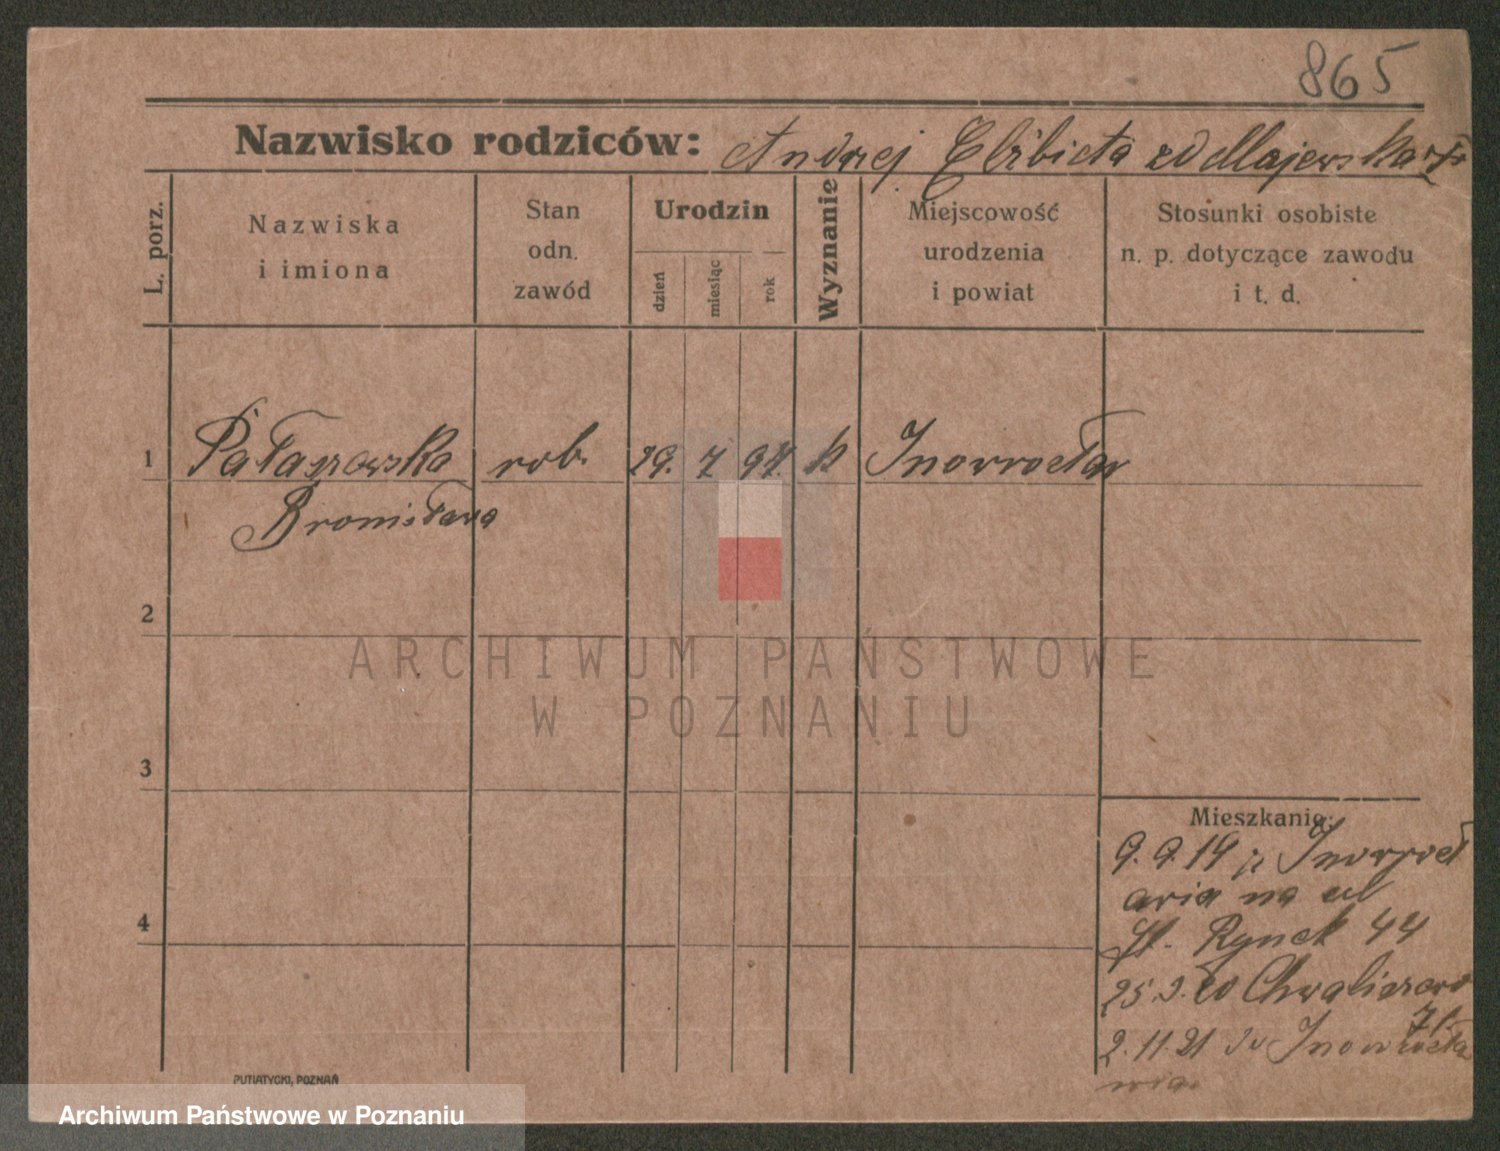 865
Nazwisko rodziców: Andrzej Elżbieta zd Majewska
L. porz.
Nazwiska i imiona
Stan odn. zawód
Urodzin
dzień
miesiąc
rok
Wyznanie
Miejscowość urodzenia i powiat
Stosunki osobiste n. p. dotyczące zawodu i t. d.
1 Pałaszowska rob. 29. 7 97. k Inowrocław
Bronisława
2
3
4
Mieszkanie:
9. 9. 19 z Inowrocł
awia na ul
St. Rynek 44
25. 9. 20 Chwaliszewo
71.
2. 11. 21 do Inowrocła
wia
PUTIATYCKI, POZNAŃ
ARCHIWUM PAŃSTWOWE
W POZNANIU
Archiwum Państwowe w Poznaniu